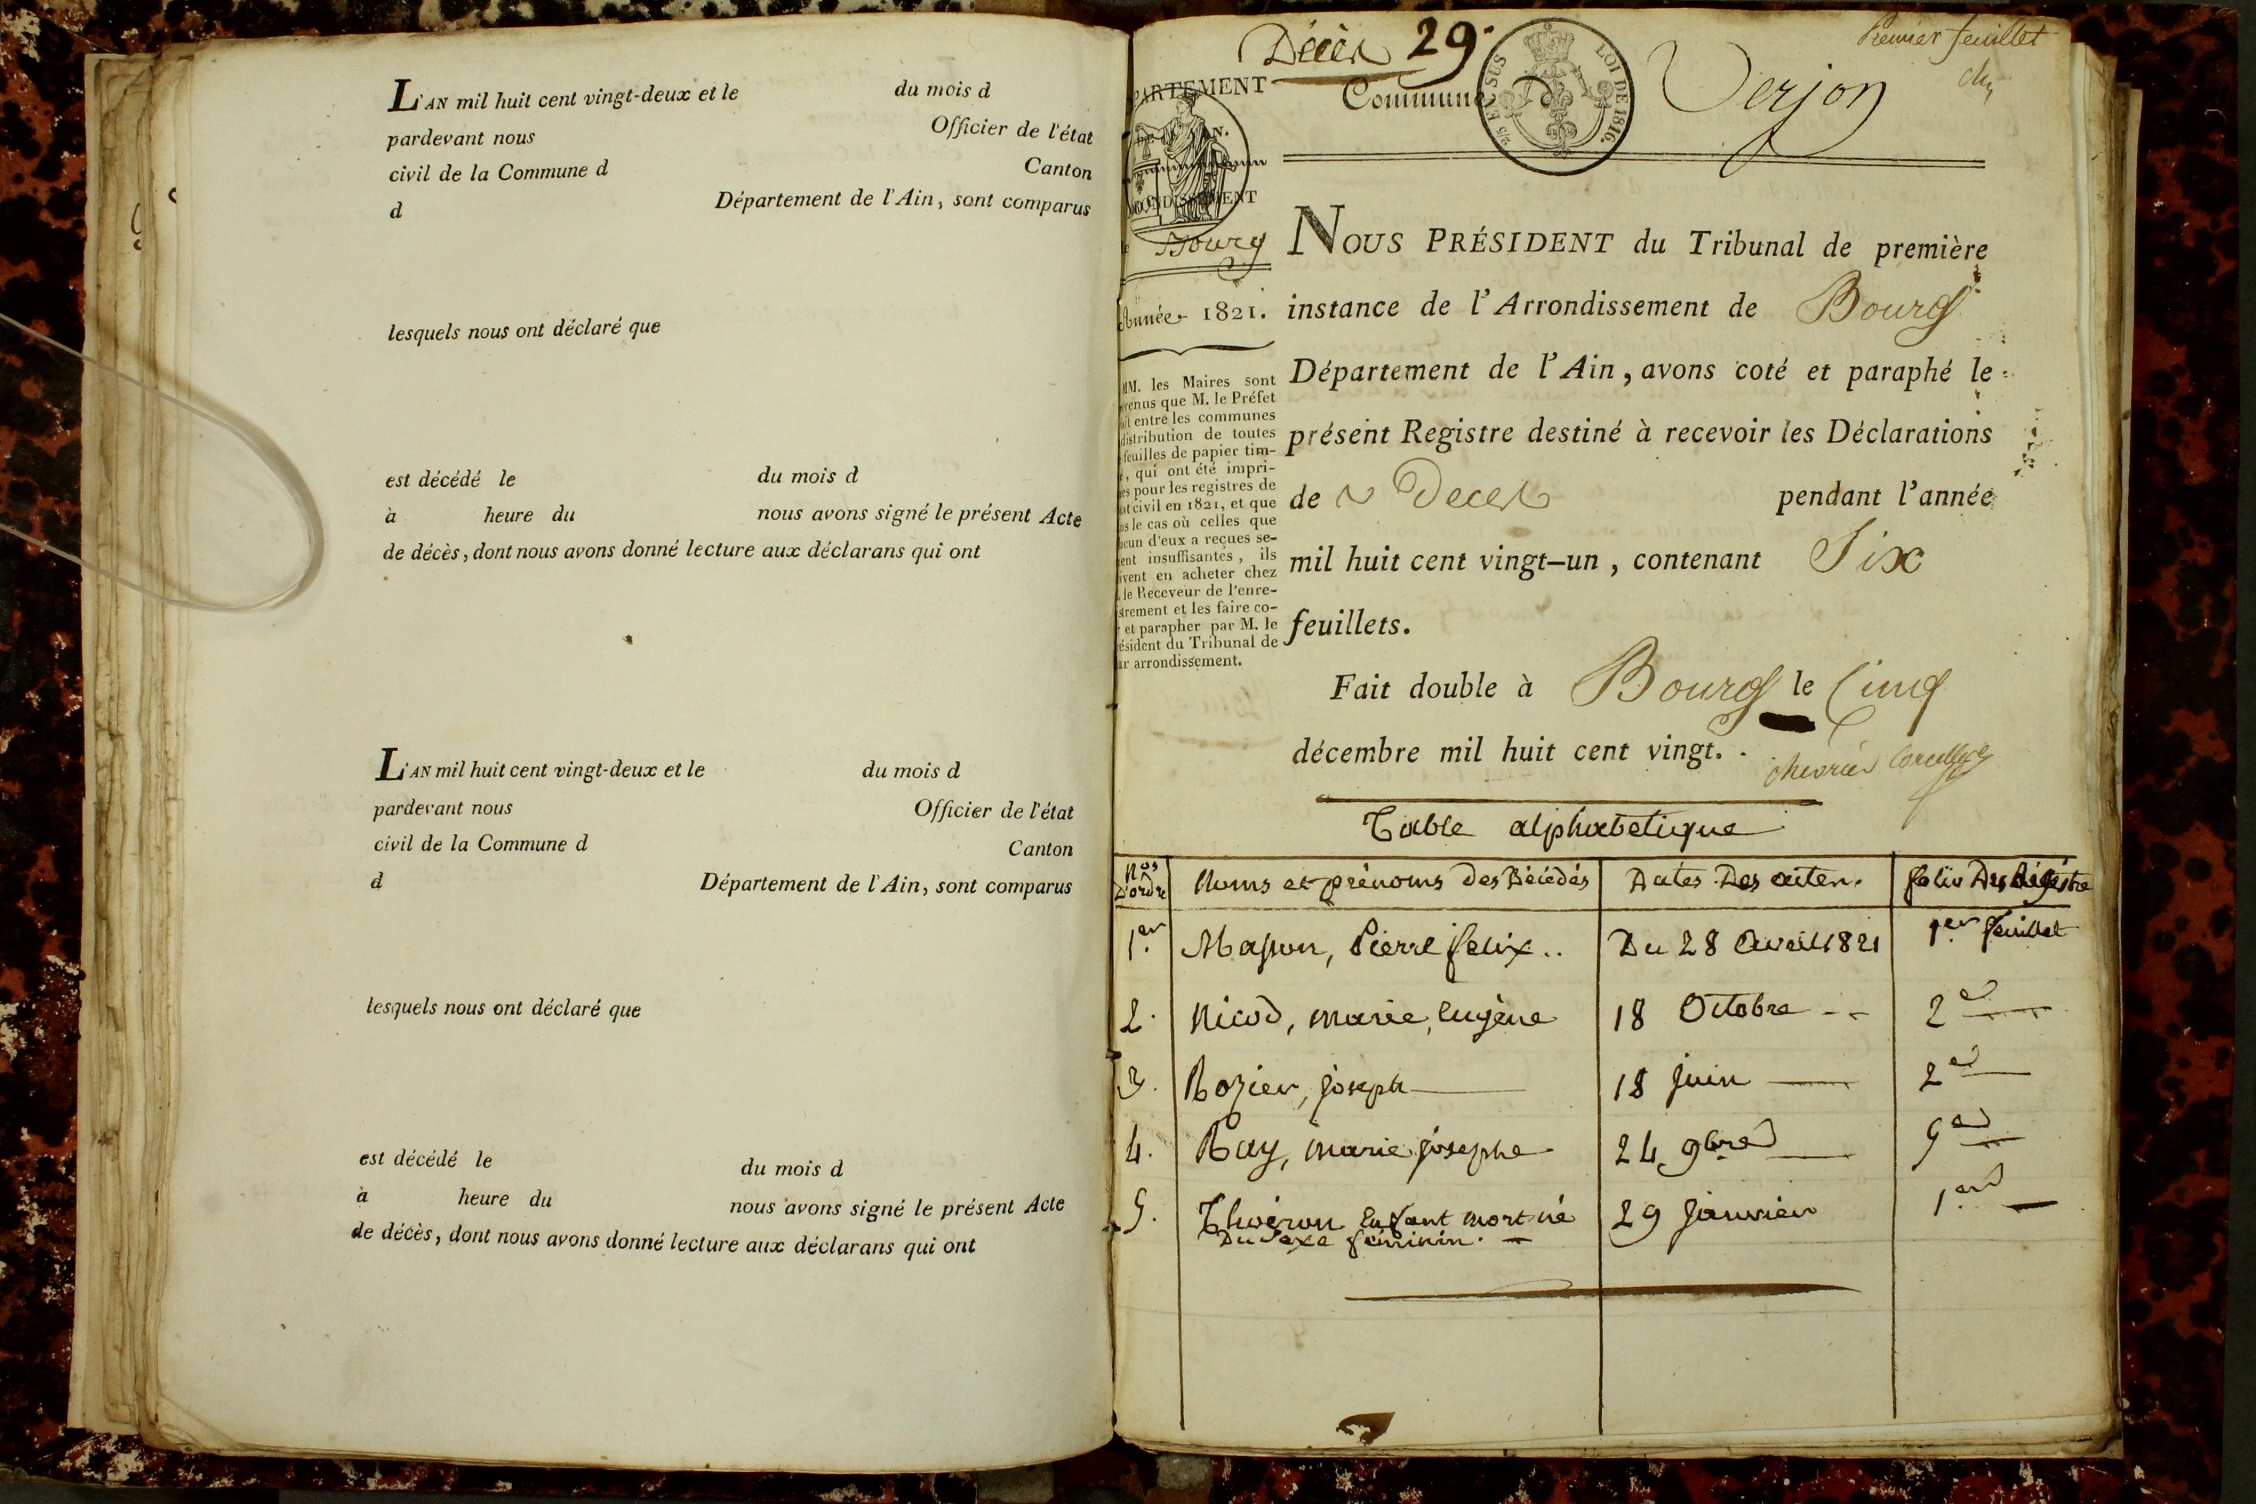 L'AN mil huit cent vingt-deux et le du mois d
pardevant nous Officier de l'état
civil de la Commune d Canton
d Département de l'Ain, sont comparus
lesquels nous ont déclaré que
est décédé le du mois d
à heure du nous avons signé le présent Acte
de décès, dont nous avons donné lecture aux déclarans qui ont
L'AN mil huit cent vingt-deux et le du mois d
pardevant nous Officier de l'état
civil de la Commune d Canton
d Département de l'Ain, sont comparus
lesquels nous ont déclaré que
est décédé le du mois d
à heure du nous avons signé le présent Acte
de décès, dont nous avons donné lecture aux déclarans qui ont
Premier feuillet
Décès 29.
PARTEMENT
Commune De Verjon
25 EN SUS LOI DE 1816.
ONDISSEMENT
Bourg
Année 1821.
MM. les Maires sont
venus que M. le Préfet
ait entre les communes
distribution de toutes
feuilles de papier tim-
, qui ont été impri-
es pour les registres de
at civil en 1821, et que
ns le cas où celles que
acun d'eux a reçues se-
ent insuffisantes, ils
ivent en acheter chez
. le Receveur de l'enre-
strement et les faire co-
r et parapher par M. le
ésident du Tribunal de
ur arrondissement.
NOUS PRÉSIDENT du Tribunal de première
instance de l'Arrondissement de Bourg
Département de l'Ain, avons coté et paraphé le
présent Registre destiné à recevoir les Déclarations
de Decès pendant l'année
mil huit cent vingt-un, contenant Six
feuillets.
Fait double à Bourg le Cinq
décembre mil huit cent vingt.
Table alphabetique
Nos D'ordre Noms et prénoms Des Décédés Dates Des actes. folio Du Régistre
1er. Masson, Pierre felix.. Du 28 Avril 1821 1er feuillet
2. Nicod, marie, Eugène 18 Octobre 2d
3. Rozier, joseph 18 juin 2d
4. Ray, marie josephe 24 9bre 5d
5. Thoiron Enfant mort né 29 Janvier 1erd
Du Sexe féminin.